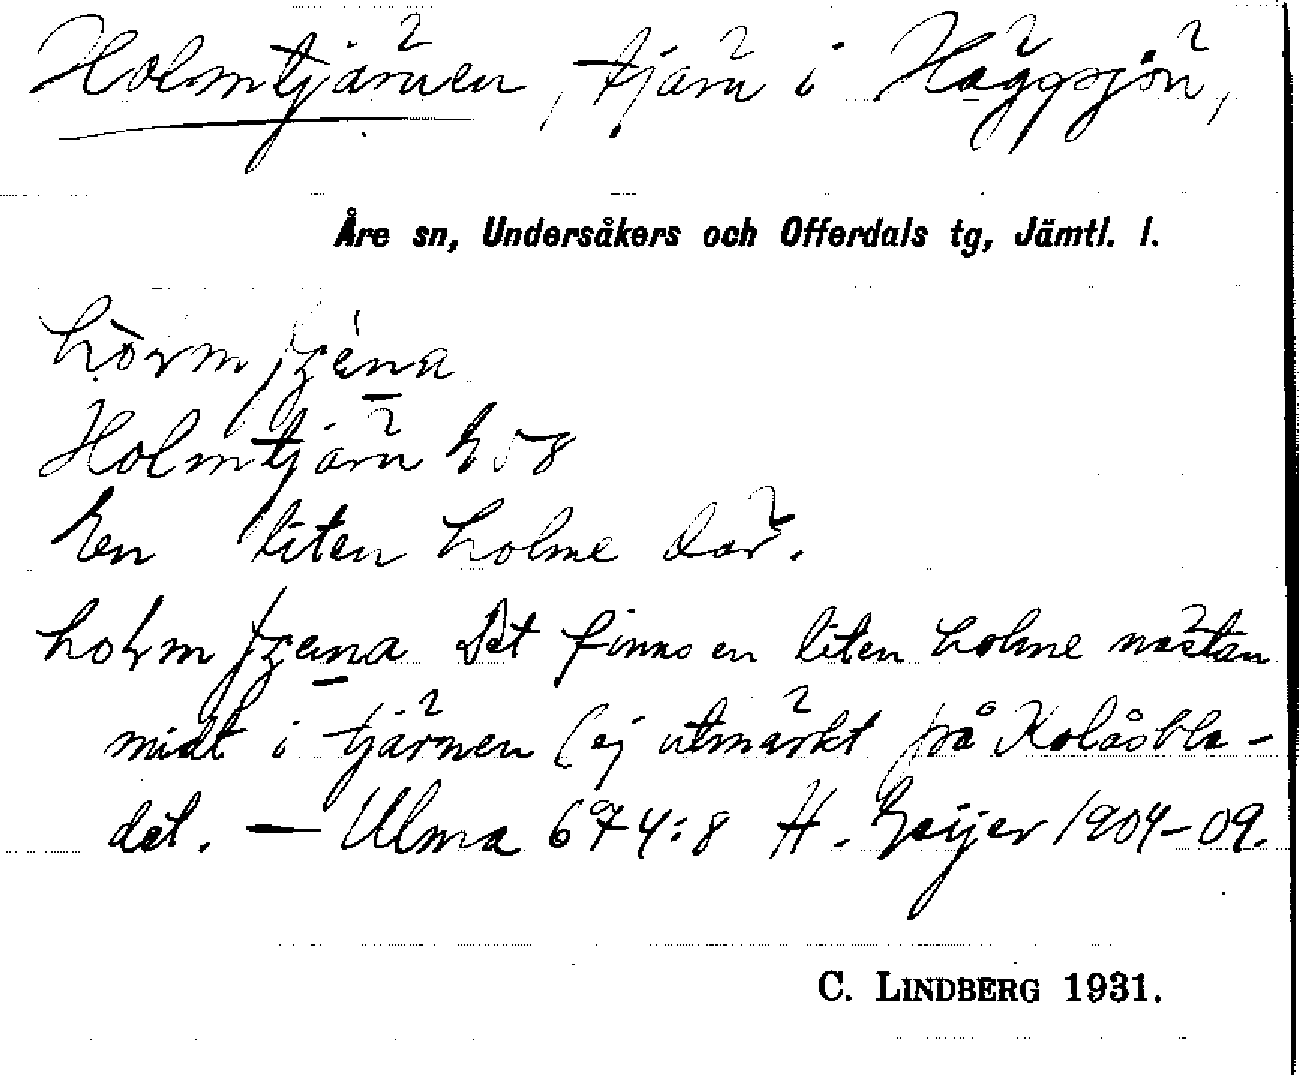 Holmtjärnen, tjärn i Häggsjön,
Åre sn, Undersåkers och Offerdals tg, Jämtl. l.
Holmtjärn E 58
En liten holme där.
Det finns en liten holme nästan
midt i tjärnen (ej utmärkt på Kolåsbla-
det. — Ulma 674:8 H. Geijer 1904-09.
C. LINDBERG 1931.